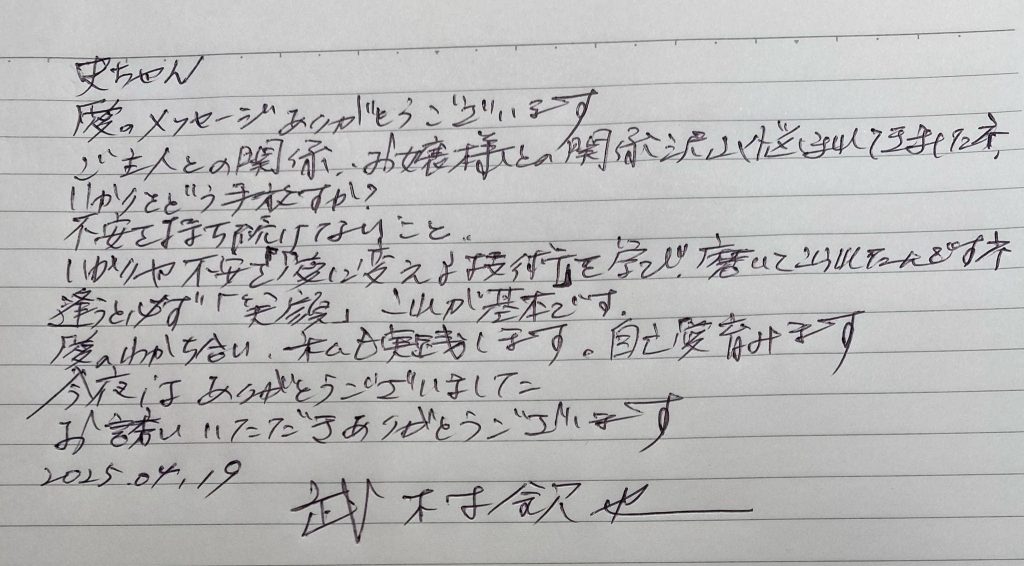 史ちゃん
愛のメッセージありがとうございます
ご主人との関係、お嬢様との関係沢山悩まれてきましたネ、
いかりをどう手放すか?
不安を持ち続けないこと、
いかりや不安を愛に変える技術を学び、磨いてこられたんですネ
逢うと必ず「笑顔」これが基本です。
愛のわかち合い、私も実践します。自己愛育みます
今夜はありがとうございました
お誘いいただきありがとうございます
2025.04.19
武村欽也